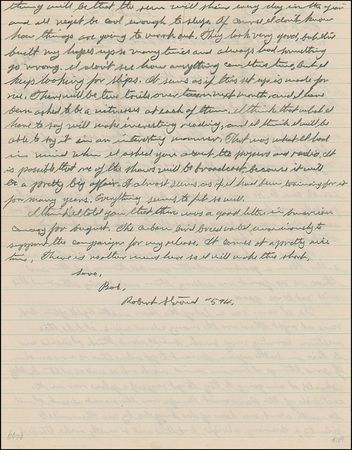 thing will be that the sun will shine every day in the year
and all night be cool enough to sleep. Of course I don't know
how things are going to work out. They look very good, but I've
built my hopes up so many times and always had something
go wrong. I don't see how anything can this time, but I
keep looking for slips. It seems as if this set up is made for
me. There will be two trials over there next month, and I have
been asked to be a witness at each of them. I think that what I
have to say will make interesting reading, and I think I will be
able to say it in an interesting manner. That was what I had
in mind when I asked you about the papers and radio. It
is possible that one of the shows will be broadcast, because it will
be a pretty big affair. It almost seems as if I had been training for it
for many years. Everything seems to fit so well.
I think I told you that there was a good letter in American
Canary for August. The a bird breeders voted unanimously to
support the campaign for my release. It comes at a pretty nice
time. There is neither news here so I will make this short.
Love,
Bob.
Robert Stroud #594.